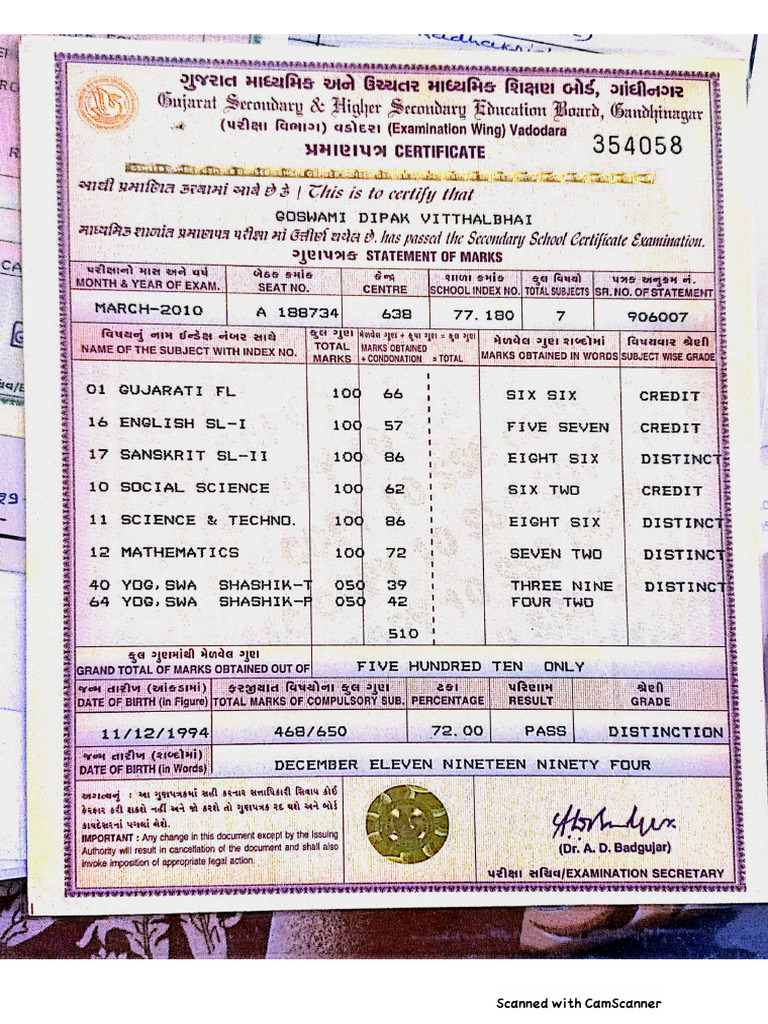 ગુજરાત માધ્યમિક અને ઉચ્ચતર માધ્યમિક શિક્ષણ બોર્ડ, ગાંધીનગર
Gujarat Secondary & Higher Secondary Education Board, Gandhinagar
(પરીક્ષા વિભાગ) વડોદરા (Examination Wing) Vadodara
354058
પ્રમાણપત્ર CERTIFICATE
આથી પ્રમાણિત કરવામાં આવે છે કે / This is to certify that
GOSWAMI DIPAK VITTHALBHAI
માધ્યમિક શાળાંત પ્રમાણપત્ર પરીક્ષા માં ઉત્તીર્ણ થયેલ છે. has passed the Secondary School Certificate Examination.
ગુણપત્રક STATEMENT OF MARKS
પરીક્ષાનો માસ અને વર્ષ બેઠક ક્રમાંક કેન્દ્ર શાળા ક્રમાંક કુલ વિષયો પત્રક અનુક્રમ નં.
MONTH & YEAR OF EXAM. SEAT NO. CENTRE SCHOOL INDEX NO. TOTAL SUBJECTS SR. NO. OF STATEMENT
MARCH-2010 A 188734 638 77.180 7 906007
વિષયનું નામ ઈન્ડેક્ષ નંબર સાથે કુલ ગુણ મેળવેલ ગુણ + કૃપા ગુણ = કુલ ગુણ મેળવેલ ગુણ શબ્દોમાં વિષયવાર શ્રેણી
NAME OF THE SUBJECT WITH INDEX NO. TOTAL MARKS MARKS OBTAINED + CONDONATION = TOTAL MARKS OBTAINED IN WORDS SUBJECT WISE GRADE
01 GUJARATI FL 100 66 SIX SIX CREDIT
16 ENGLISH SL-I 100 57 FIVE SEVEN CREDIT
17 SANSKRIT SL-II 100 86 EIGHT SIX DISTINCT
10 SOCIAL SCIENCE 100 62 SIX TWO CREDIT
11 SCIENCE & TECHNO. 100 86 EIGHT SIX DISTINCT
12 MATHEMATICS 100 72 SEVEN TWO DISTINCT
40 YOG,SWA SHASHIK-T 050 39 THREE NINE DISTINCT
64 YOG,SWA SHASHIK-P 050 42 FOUR TWO
510
કુલ ગુણમાંથી મેળવેલ ગુણ
GRAND TOTAL OF MARKS OBTAINED OUT OF FIVE HUNDRED TEN ONLY
જન્મ તારીખ (આંકડામાં) ફરજીયાત વિષયોના કુલ ગુણ ટકા પરિણામ શ્રેણી
DATE OF BIRTH (in Figure) TOTAL MARKS OF COMPULSORY SUB. PERCENTAGE RESULT GRADE
11/12/1994 468/650 72.00 PASS DISTINCTION
જન્મ તારીખ (શબ્દોમાં)
DATE OF BIRTH (in Words) DECEMBER ELEVEN NINETEEN NINETY FOUR
અગત્યનું : આ ગુણપત્રકમાં સહી કરનાર સત્તાધિકારી સિવાય કોઈ
ફેરફાર કરી શકશે નહીં અને જો કરશે તો ગુણપત્રક રદ થશે અને બોર્ડ
કાયદેસરનાં પગલાં લેશે.
IMPORTANT : Any change in this document except by the Issuing
Authority will result in cancellation of the document and shall also
invoke imposition of appropriate legal action.
(Dr. A. D. Badgujar)
પરીક્ષા સચિવ/EXAMINATION SECRETARY
Scanned with CamScanner